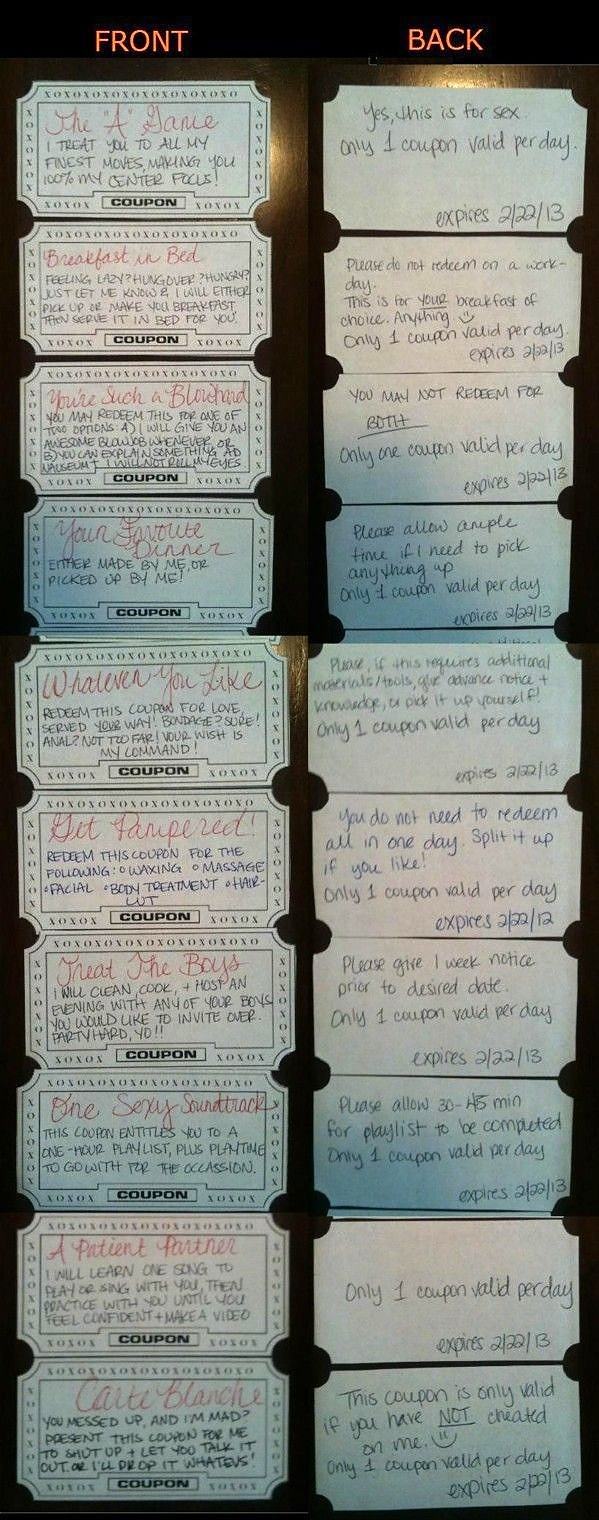 FRONT
BACK
XOXOXOXOXOXOXOXOXOXO
The "A" Game
I TREAT YOU TO ALL MY
FINEST MOVES, MAKING YOU
100% MY CENTER FOCUS!
XOXOX COUPON XOXOX
Yes, this is for sex.
Only 1 coupon valid per day.
expires 2/22/13
Breakfast in Bed
FEELING LAZY? HUNGOVER? HUNGRY?
JUST LET ME KNOW & I WILL EITHER
PICK UP OR MAKE YOU BREAKFAST
THEN SERVE IT IN BED FOR YOU.
XOXOX COUPON XOXOX
Please do not redeem on a work-
day.
This is for YOUR breakfast of
choice. Anything
Only 1 coupon valid per day.
expires 2/22/13
You're Such a Blowhard
YOU MAY REDEEM THIS FOR ONE OF
TWO OPTIONS: A) I WILL GIVE YOU AN
AWESOME BLOWJOB WHENEVER, OR
B) YOU CAN EXPLAIN SOMETHING AD
NAUSEUM + I WILL NOT ROLL MY EYES
XOXOX COUPON XOXOX
YOU MAY NOT REDEEM FOR
BOTH
Only one coupon valid per day
expires 2/22/13
Your Favorite
Dinner
EITHER MADE BY ME, OR
PICKED UP BY ME!
XOXOX COUPON XOXOX
Please allow ample
time if I need to pick
anything up
Only 1 coupon valid per day
expires 2/22/13
Whatever You Like
REDEEM THIS COUPON FOR LOVE,
SERVED YOUR WAY! BONDAGE? SURE!
ANAL? NOT TOO FAR! YOUR WISH IS
MY COMMAND!
XOXOX COUPON XOXOX
Please, if this requires additional
materials/tools, give advance notice +
knowledge, or pick it up yourself!
Only 1 coupon valid per day
expires 2/22/13
Get Pampered!
REDEEM THIS COUPON FOR THE
FOLLOWING: o WAXING o MASSAGE
o FACIAL o BODY TREATMENT o HAIR-
CUT
XOXOX COUPON XOXOX
You do not need to redeem
all in one day. Split it up
if you like!
Only 1 coupon valid per day
expires 2/22/12
Treat The Boys
I WILL CLEAN, COOK, + HOST AN
EVENING WITH ANY OF YOUR BOYS
YOU WOULD LIKE TO INVITE OVER.
PARTY HARD, YO!!
XOXOX COUPON XOXOX
Please give 1 week notice
prior to desired date.
Only 1 coupon valid per day
expires 2/22/13
One Sexy Soundtrack
THIS COUPON ENTITLES YOU TO A
ONE-HOUR PLAYLIST, PLUS PLAYTIME
TO GO WITH FOR THE OCCASSION.
XOXOX COUPON XOXOX
Please allow 30-45 min
for playlist to be completed
Only 1 coupon valid per day
expires 2/22/13
A Patient Partner
I WILL LEARN ONE SONG TO
PLAY OR SING WITH YOU, THEN
PRACTICE WITH YOU UNTIL YOU
FEEL CONFIDENT + MAKE A VIDEO
XOXOX COUPON XOXOX
Only 1 coupon valid per day
expires 2/22/13
Carte Blanche
YOU MESSED UP, AND I'M MAD?
PRESENT THIS COUPON FOR ME
TO SHUT UP + LET YOU TALK IT
OUT. OR I'LL DROP IT WHATEVS!
XOXOX COUPON XOXOX
This coupon is only valid
if you have NOT cheated
on me.
Only 1 coupon valid per day
expires 2/22/13